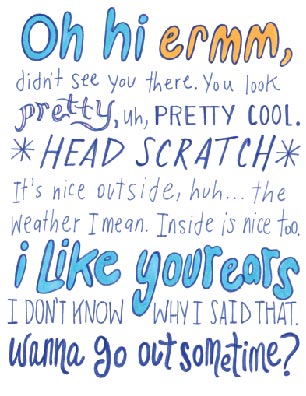 Oh hi ermm,
didn't see you there. You look
pretty, uh, PRETTY COOL.
*HEAD SCRATCH*
It's nice outside, huh... the
weather I mean. Inside is nice too.
i like your ears
I DON'T KNOW WHY I SAID THAT.
wanna go out sometime?